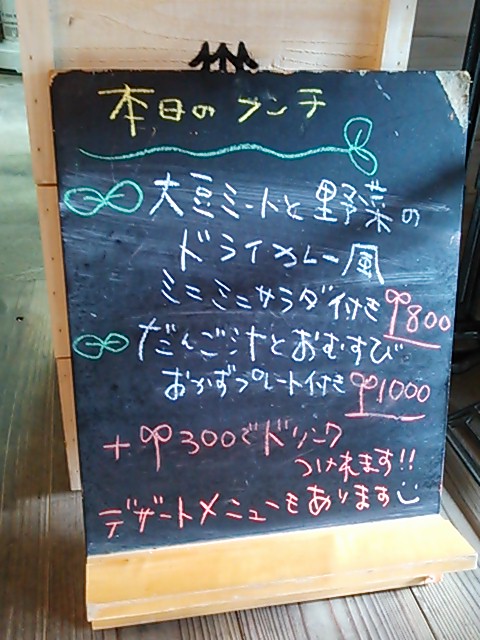 本日のランチ
大豆ミートと野菜の
ドライカレー風
ミニミニサラダ付き 800
だんご汁とおむすび
おかずプレート付き 1000
+ 300でドリンク
つけれます!!
デザートメニューもあります